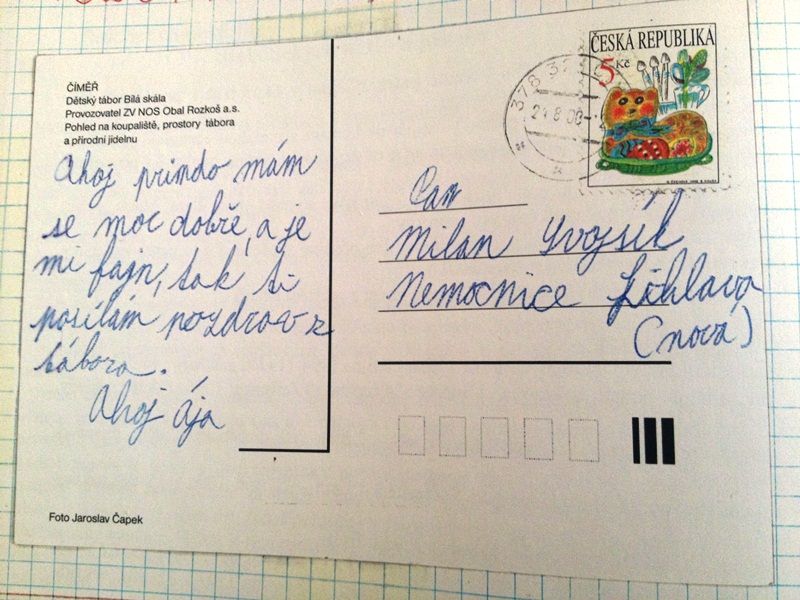 ČÍMĚŘ
Dětský tábor Bílá skála
Provozovatel ZV NOS Obal Rozkoš a.s.
Pohled na koupaliště, prostory tábora
a přírodní jídelnu
Ahoj prindo mám
se moc dobře, a je
mi fajn, tak ti
posílám pozdrav z
tábora.
Ahoj Ája
Foto Jaroslav Čapek
ČESKÁ REPUBLIKA
5 Kč
378 3
Pan
Milan
Nemocnice Jihlava
(nová)